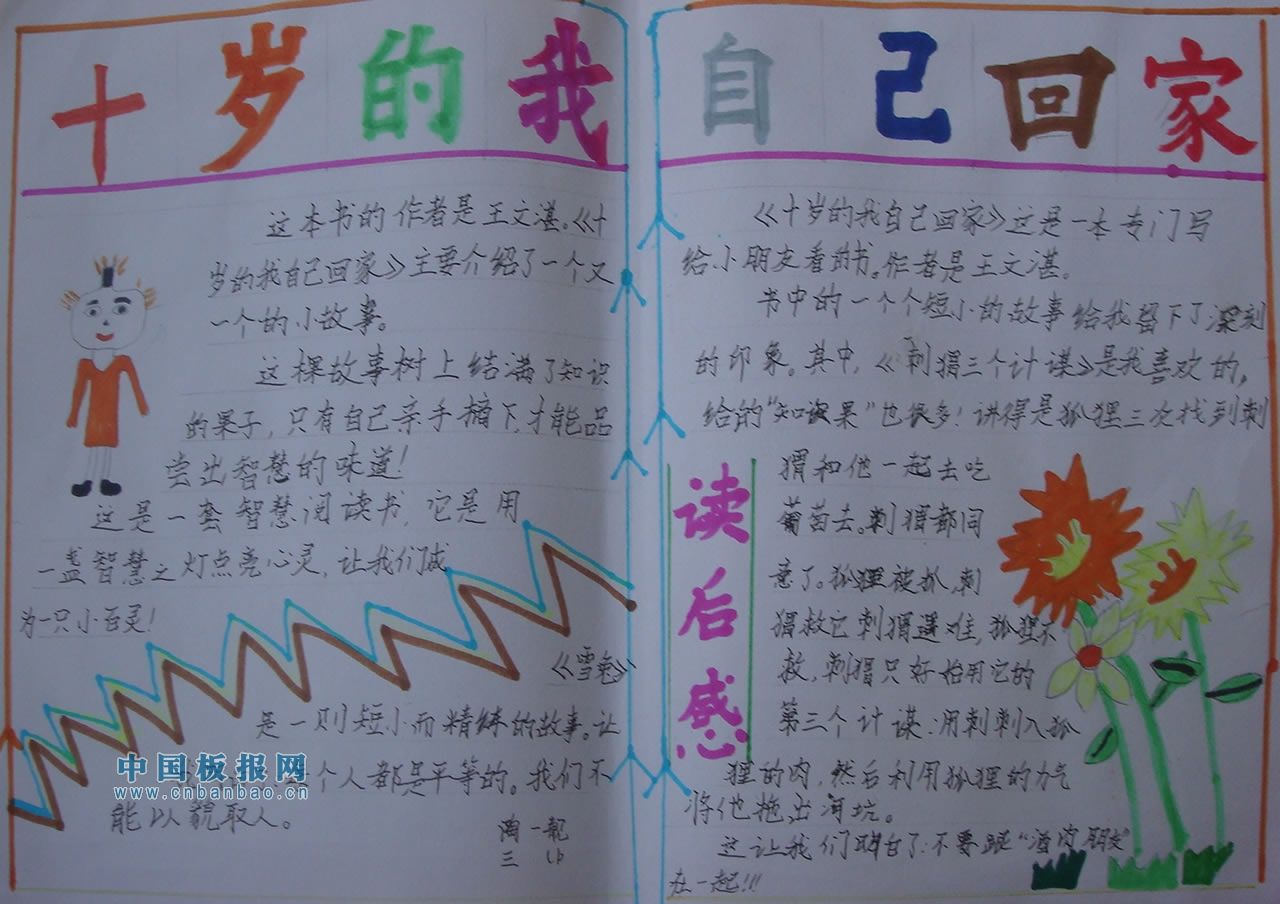 十岁的我自己回家
这本书的作者是王文湛。《十
岁的我自己回家》主要介绍了一个又
一个的小故事。
这棵故事树上结满了知识
的果子,只有自己亲手摘下,才能品
尝出智慧的味道!
这是一套智慧阅读书,它是用
一盏智慧之灯点亮心灵,让我们成
为一只小百灵!
《雪兔》
是一则短小而精练的故事。让
个人都是平等的。我们不
能以貌取人。
陶一
三
中国板报网
www.cnbanbao.cn
《十岁的我自己回家》这是一本专门写
给小朋友看的书。作者是王文湛。
书中的一个个短小的故事给我留下了深刻
的印象。其中,《刺猬三个计谋》是我喜欢的,
给的“知识果”也很多!讲得是狐狸三次找到刺
读后感
猬和他一起去吃
葡萄去。刺猬都同
意了。狐狸被扒,刺
猬救它刺猬遇难,狐狸不
救,刺猬只好始用它的
第三个计谋:用刺刺入狐
狸的肉,然后利用狐狸的力气
将他拖出河坑。
这让我们明白了:不要跟“酒肉朋友”
在一起!!!